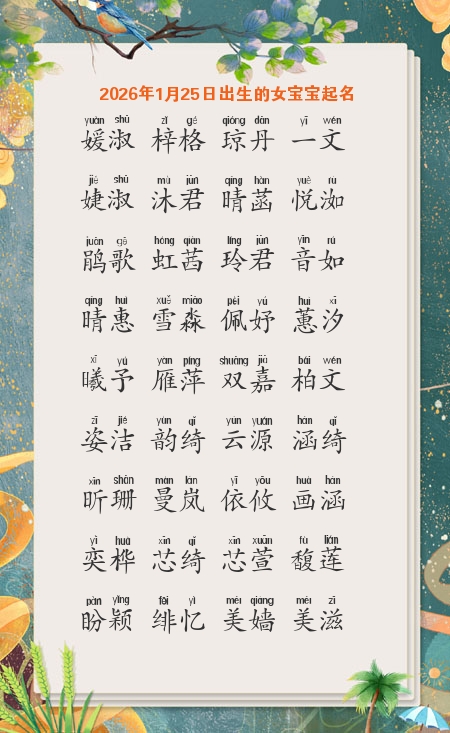 2026年1月25日出生的女宝宝起名
yuàn shū zǐ gé qióng dān yī wén
媛淑 梓格 琼丹 一文
jié shū mù jūn qíng hàn yuè rù
婕淑 沐君 晴菡 悦洳
juān gē hóng qiàn líng jūn yīn rú
鹃歌 虹茜 玲君 音如
qíng huì xuě miǎo pèi yú huì xī
晴惠 雪淼 佩妤 蕙汐
xī yú yàn píng shuāng jiā bǎi wén
曦予 雁萍 双嘉 柏文
zī jié yùn qǐ yún yuán hán qǐ
姿洁 韵绮 云源 涵绮
xīn shān màn lán yī yōu huà hán
昕珊 曼岚 依攸 画涵
yì huà xīn qǐ xīn xuān fù lián
奕桦 芯绮 芯萱 馥莲
pàn yǐng fēi yì měi qiáng měi zī
盼颖 绯忆 美嫱 美滋